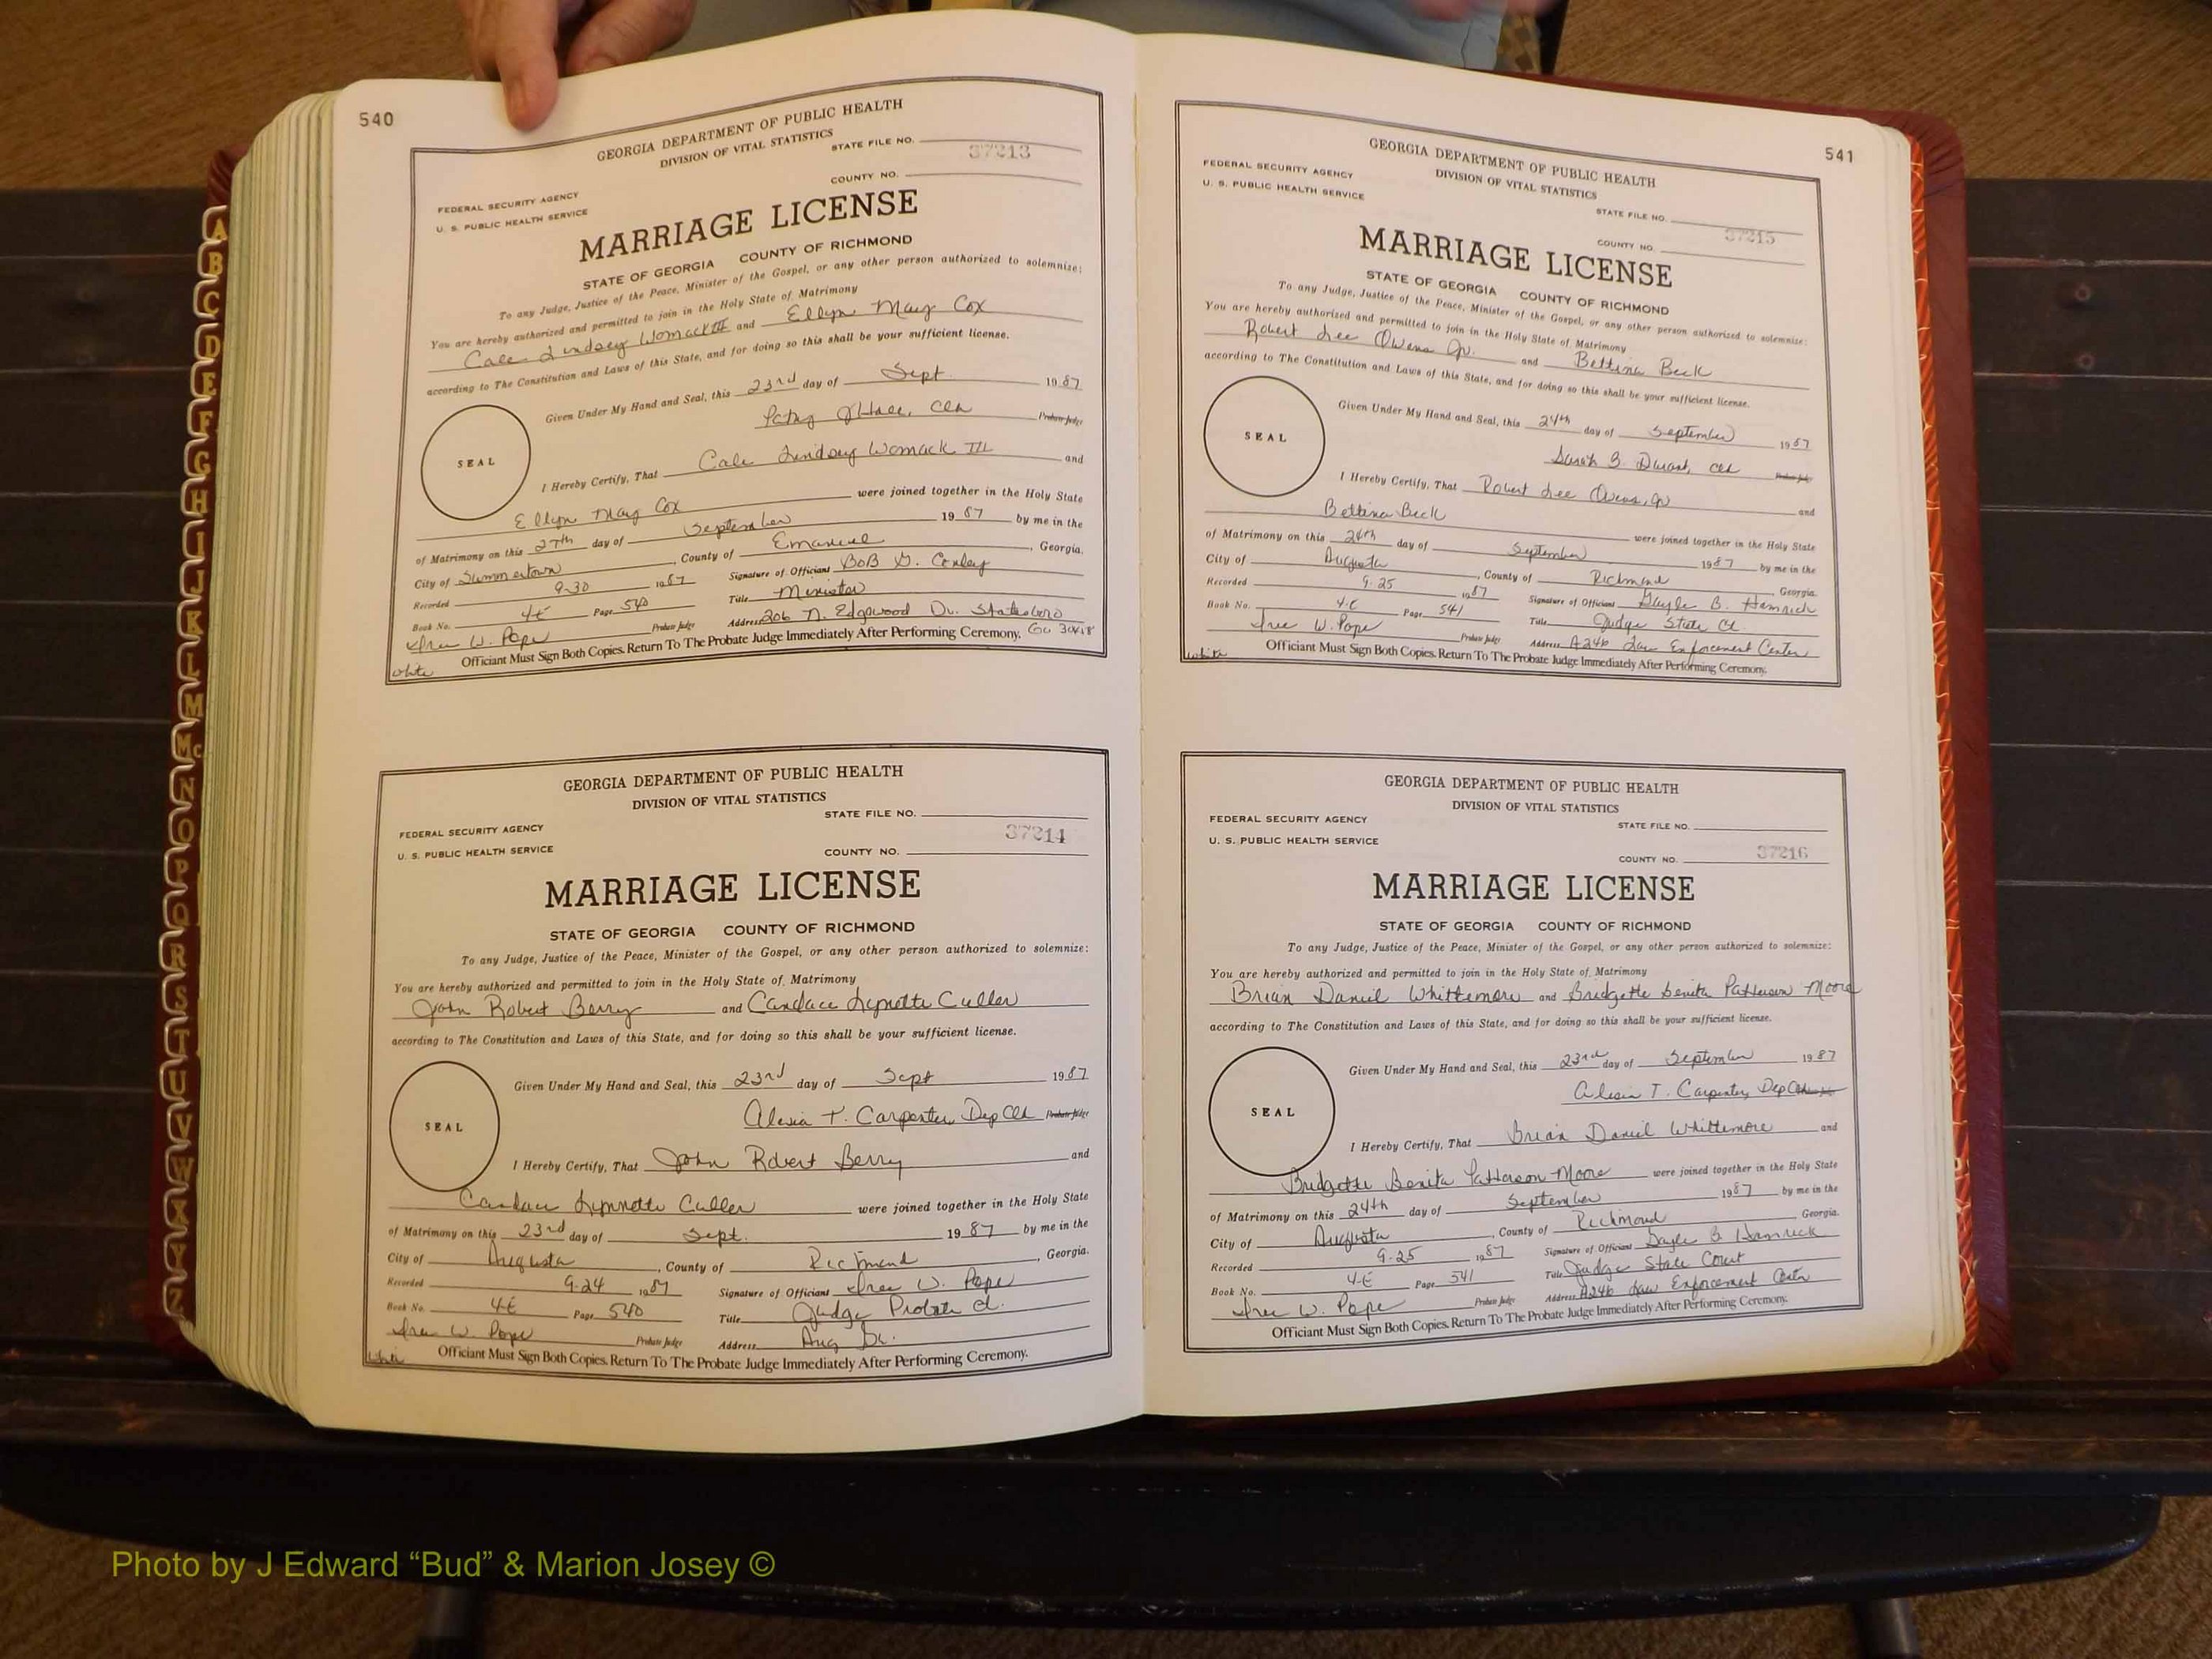 540
GEORGIA DEPARTMENT OF PUBLIC HEALTH
DIVISION OF VITAL STATISTICS
STATE FILE NO.
37213
COUNTY NO.
FEDERAL SECURITY AGENCY
U. S. PUBLIC HEALTH SERVICE
MARRIAGE LICENSE
STATE OF GEORGIA COUNTY OF RICHMOND
To any Judge, Justice of the Peace, Minister of the Gospel, or any other person authorized to solemnize:
You are hereby authorized and permitted to join in the Holy State of Matrimony
Cale Lindsey Womack III and Ellyn May Cox
according to The Constitution and Laws of this State, and for doing so this shall be your sufficient license.
Given Under My Hand and Seal, this 23rd day of Sept. 1987
Clk Probate Judge
SEAL
I Hereby Certify, That Cale Lindsey Womack III and
Ellyn May Cox were joined together in the Holy State
of Matrimony on this 27th day of September 1987 by me in the
City of Summertown, County of Emanuel, Georgia.
Recorded 9-30 1987 Signature of Officiant Bob G. Conley
Book No. 4-E Page 540 Title Minister
W. Pope Probate Judge Address 206 N. Edgewood Dr. Statesboro
Ga
Officiant Must Sign Both Copies. Return To The Probate Judge Immediately After Performing Ceremony.
white
GEORGIA DEPARTMENT OF PUBLIC HEALTH
DIVISION OF VITAL STATISTICS
STATE FILE NO.
FEDERAL SECURITY AGENCY
37214
U. S. PUBLIC HEALTH SERVICE
COUNTY NO.
MARRIAGE LICENSE
STATE OF GEORGIA COUNTY OF RICHMOND
To any Judge, Justice of the Peace, Minister of the Gospel, or any other person authorized to solemnize:
You are hereby authorized and permitted to join in the Holy State of Matrimony
John Robert Berry and Candace Lynnette Culler
according to The Constitution and Laws of this State, and for doing so this shall be your sufficient license.
Given Under My Hand and Seal, this 23rd day of Sept 1987
Alesia T. Carpenter, Dep Clk Probate Judge
SEAL
I Hereby Certify, That John Robert Berry and
Candace Lynnette Culler were joined together in the Holy State
of Matrimony on this 23rd day of Sept. 1987 by me in the
City of Augusta, County of Richmond, Georgia.
Recorded 9-24 1987 Signature of Officiant W. Pope
Book No. 4-E Page 540 Title Judge Probate Ct.
W. Pope Probate Judge Address Aug Ga.
Officiant Must Sign Both Copies. Return To The Probate Judge Immediately After Performing Ceremony.
white
541
GEORGIA DEPARTMENT OF PUBLIC HEALTH
DIVISION OF VITAL STATISTICS
FEDERAL SECURITY AGENCY
U. S. PUBLIC HEALTH SERVICE
STATE FILE NO.
37215
COUNTY NO.
MARRIAGE LICENSE
STATE OF GEORGIA COUNTY OF RICHMOND
To any Judge, Justice of the Peace, Minister of the Gospel, or any other person authorized to solemnize:
You are hereby authorized and permitted to join in the Holy State of Matrimony
Robert Lee Owens Jr. and Bettina Beck
according to The Constitution and Laws of this State, and for doing so this shall be your sufficient license.
Given Under My Hand and Seal, this 24th day of September 1987
Sarah B. Clk Probate Judge
SEAL
I Hereby Certify, That Robert Lee Owens, Jr and
Bettina Beck were joined together in the Holy State
of Matrimony on this 24th day of September 1987 by me in the
City of Augusta, County of Richmond Georgia.
Recorded 9-25 1987 Signature of Officiant Gayle B. Hamrick
Book No. 4-E Page 541 Title Judge State Ct.
W. Pope Probate Judge Address A246 Law Enforcement Center
Officiant Must Sign Both Copies. Return To The Probate Judge Immediately After Performing Ceremony.
white
GEORGIA DEPARTMENT OF PUBLIC HEALTH
DIVISION OF VITAL STATISTICS
FEDERAL SECURITY AGENCY
STATE FILE NO.
U. S. PUBLIC HEALTH SERVICE
37216
COUNTY NO.
MARRIAGE LICENSE
STATE OF GEORGIA COUNTY OF RICHMOND
To any Judge, Justice of the Peace, Minister of the Gospel, or any other person authorized to solemnize:
You are hereby authorized and permitted to join in the Holy State of Matrimony
Brian Daniel Whittemore and Bridgette Benita Patterson Moore
according to The Constitution and Laws of this State, and for doing so this shall be your sufficient license.
Given Under My Hand and Seal, this 23rd day of September 1987
Alesia T. Carpenter, Dep Clk
SEAL
I Hereby Certify, That Brian Daniel Whittemore and
Bridgette Benita Patterson Moore were joined together in the Holy State
of Matrimony on this 24th day of September 1987 by me in the
City of Augusta, County of Richmond Georgia.
Recorded 9-25 1987 Signature of Officiant Gayle B Hamrick
Book No. 4-E Page 541 Title Judge State Court
W. Pope Probate Judge Address A246 Law Enforcement Center
Officiant Must Sign Both Copies. Return To The Probate Judge Immediately After Performing Ceremony.
A
B
C
D
E
F
G
H
I
J
K
L
M
Mc
N
O
P
Q
R
S
T
U
V
W
X
Y
Z
Photo by J Edward “Bud” & Marion Josey ©